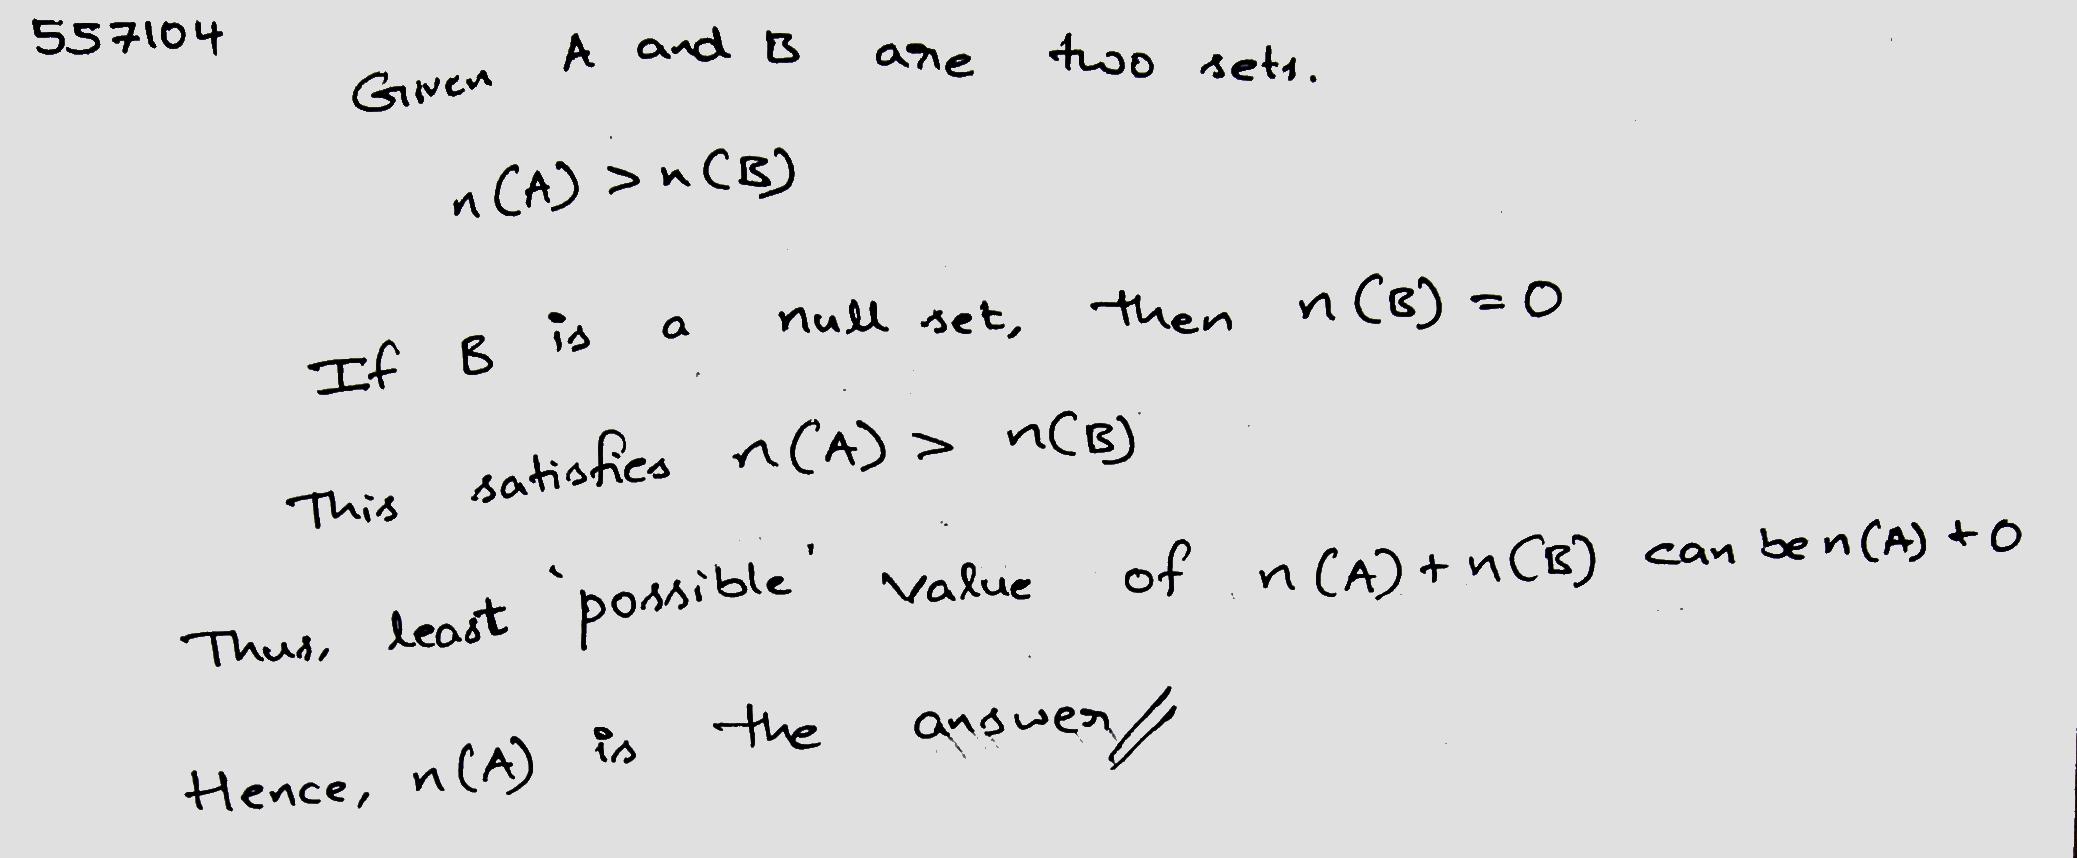 557104
Given A and B are two sets.
n(A) > n(B)
If B is a null set, then n(B) = 0
This satisfies n(A) > n(B)
Thus, least 'possible' value of n(A) + n(B) can be n(A) + 0
Hence, n(A) is the answer//